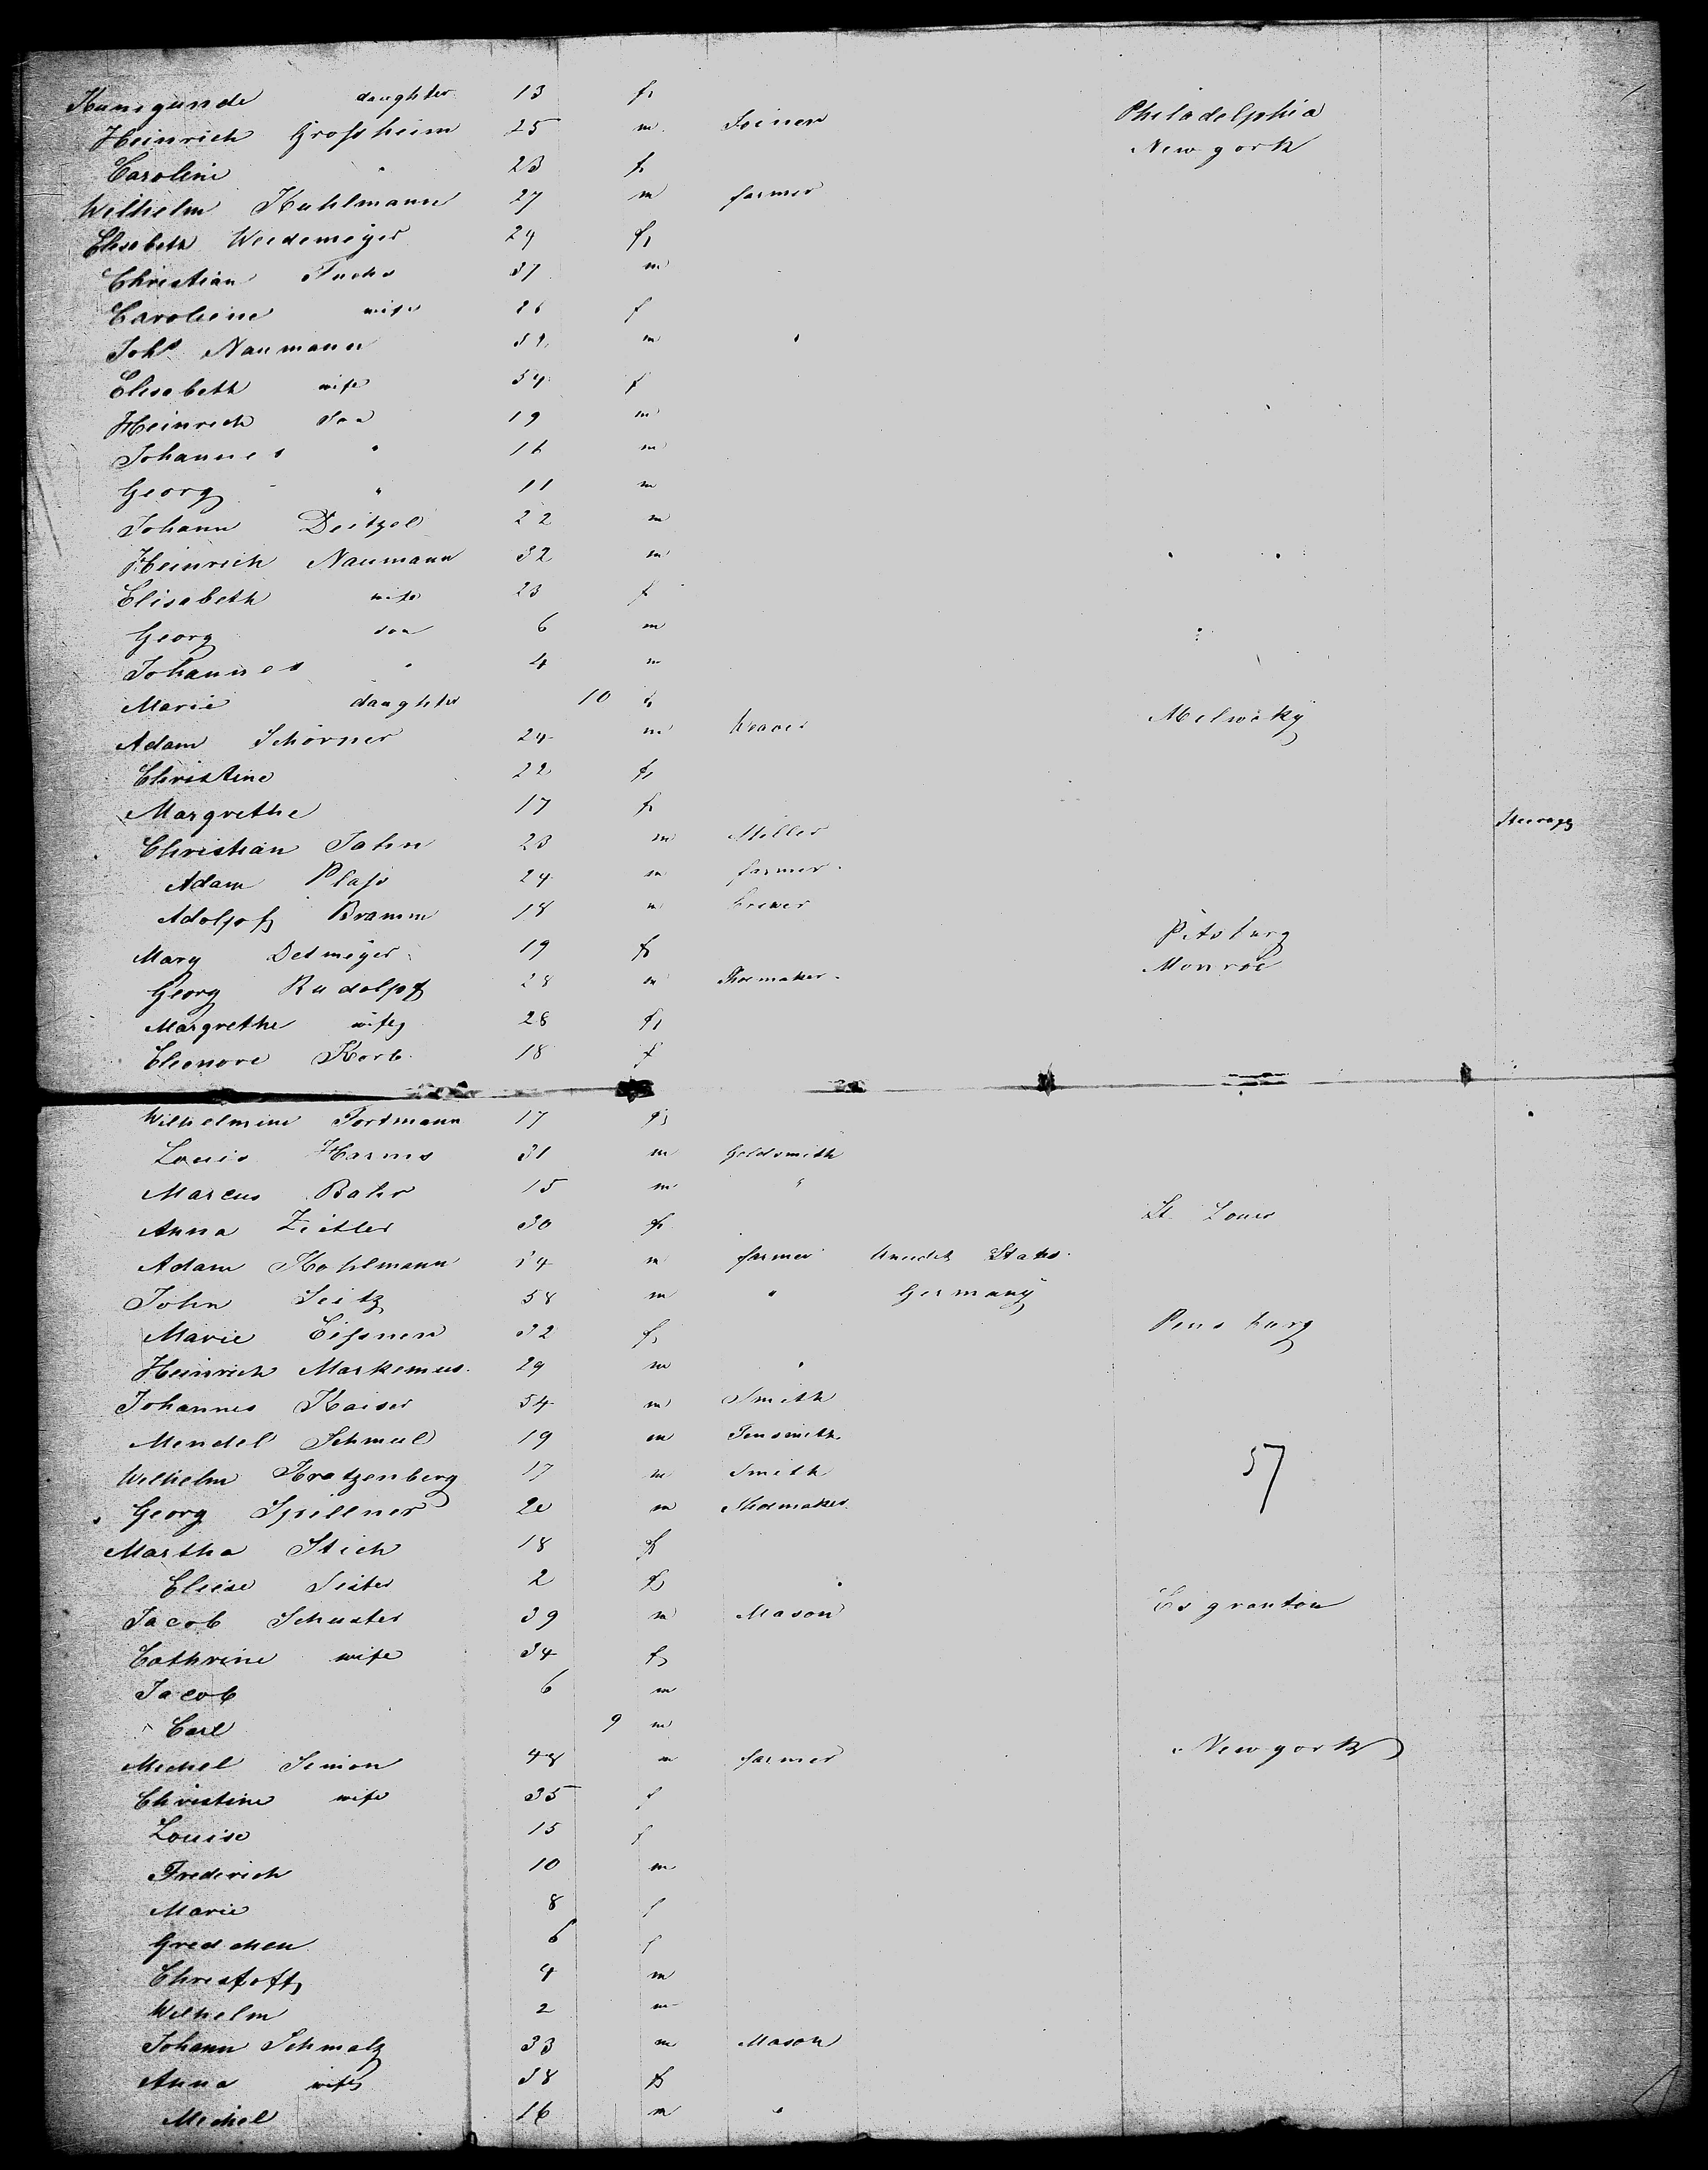 Kunigunde daughter 13 f
Heinrich Großheim 25 m Joiner Philadelphia
Caroline " 23 f New york
Wilhelm Kuhlmann 27 m farmer
Elisabeth Weidemeÿer 29 f
Christian Fuchs 37 m
Caroline wife 26 f
Joh Naumann m "
Elisabeth wife 54 f
Heinrich son 19 m
Johannes " 16 m
Georg " 11 m
Johann Deitzel 22 m
Heinrich Naumann 32 m
Elisabeth wife 23 f
Georg son 6 m
Johannes " 4 m
Marie daughter 10 f
Adam Schörner 24 m Weaver Melwoky
Christine 22 f
Margrethe 17 f
Christian Jahn 23 m Miller Steerage
Adam Plaß 24 m farmer
Adolpf Bramm 18 m brewer
Mary Detmeÿer 19 f Pitsburg
Georg Rudolpf 28 m Shoemaker Monroe
Margrethe wife 28 f
Eleonore Korb 18 f
Wilhelmine Fortmann 17 f
Louis Harms 31 m Goldsmith
Marcus Bahr 15 m "
Anna Zietler 30 f St Louis
Adam Kohlmann 54 m farmer Unidet States
John Seitz 58 m " Germany
Marie Eißnen 32 f Pensburg
Heinrich Markemus 29 m "
Johannes Kaiser 54 m Smith
Mendel Schmul 19 m Tinsmith
Wilhelm Kratzenberg 17 m Smith 57
Georg Spillner 20 m Shoemaker
Martha Stich 18 f
Eliese Sister 2 f
Jacob Schuster 39 m Mason Esgranton
Cathrine wife 34 f
Jacob 6 m
Carl 9 m
Michel Simon 48 m farmer New york
Christine wife 35 f
Louise 15 f
Frederich 10 m
Marie 8 f
Gredchen 6 f
Christoff 4 m
Wilhelm 2 m
Johann Schmalz 33 m Mason
Anna wife 38 f
Michel 16 m "